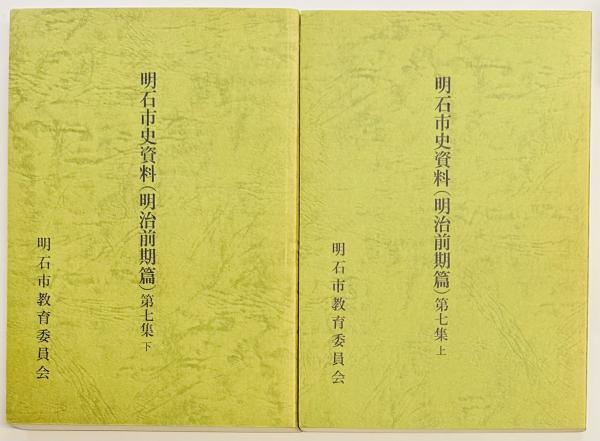 明石市史資料（明治前期篇）第七集 上
明石市教育委員会
明石市史資料（明治前期篇）第七集 下
明石市教育委員会